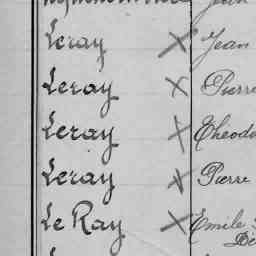 Leray X Jean
Leray X Pierre
Leray X Theodo
Leray X Pierre
Le Ray X Emile